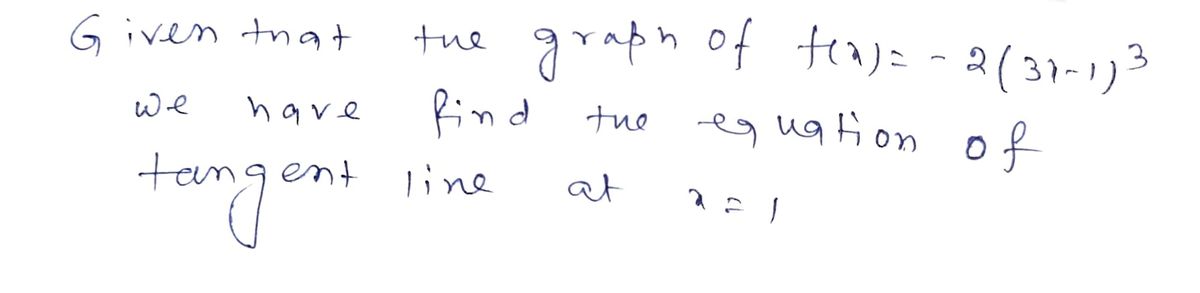 Given that the graph of f(x) = -2(3x-1)³
we have find the equation of
tangent line at x = 1